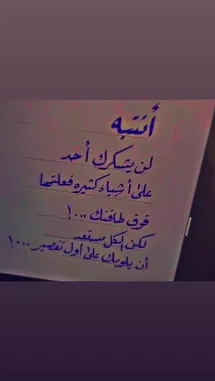 أنتبه
لن يشكرك أحد
على أشياء كثيره فعلتها
فوق طاقتك ...!
لكن الكل مستعد
أن يلومك على أول تقصير ...!